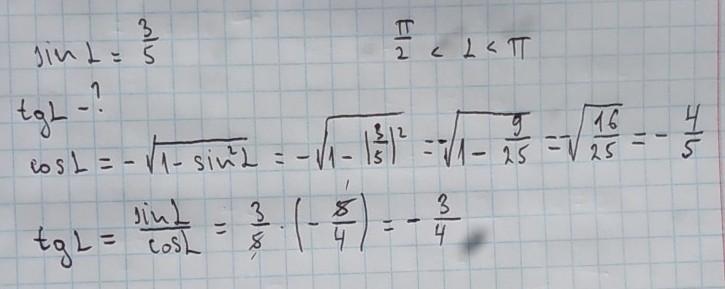 sin L = 3/5     π/2 < L < π
tgL - ?
cosL = -√(1 - sin²L) = -√(1 - |3/5|²) = -√(1 - 9/25) = -√(16/25) = - 4/5
tgL = sinL/cosL = 3/5 · (- 5/4) = - 3/4